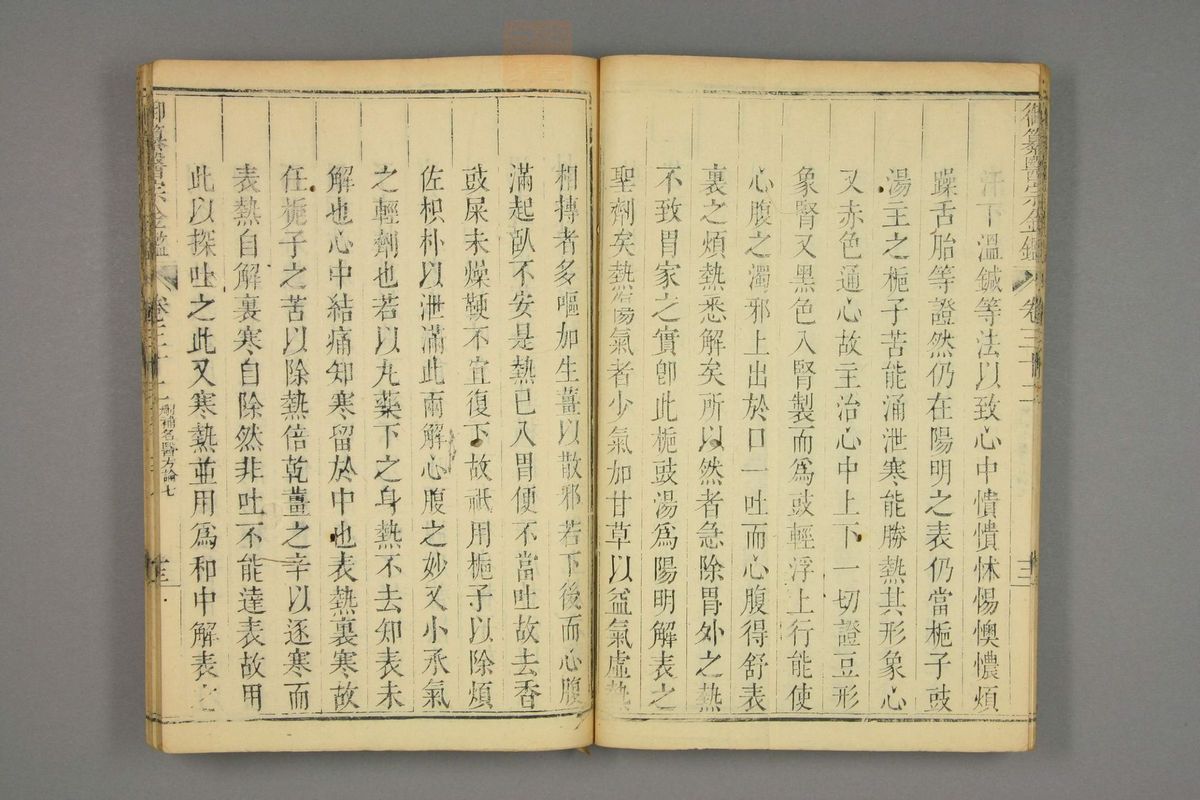 汗下溫鍼等法以致心中憒憒怵惕懊憹煩
躁舌胎等證然仍在陽明之表仍當梔子豉
湯主之梔子苦能涌泄寒能勝熱其形象心
又赤色通心故主治心中上下一切證豆形
象腎又黑色入腎製而爲豉輕浮上行能使
心腹之濁邪上出於口一吐而心腹得舒表
裏之煩熱悉解矣所以然者急除胃外之熱
不致胃家之實卽此梔豉湯爲陽明解表之
聖劑矣熱傷氣者少氣加甘草以益氣虛熱
相摶者多嘔加生薑以散邪若下後而心腹
滿起臥不安是熱已入胃便不當吐故去香
豉屎未燥鞕不宜復下故祇用梔子以除煩
佐枳朴以泄滿此兩解心腹之妙又小承氣
之輕劑也若以丸藥下之身熱不去知表未
解也心中結痛知寒留於中也表熱裏寒故
任梔子之苦以除熱倍乾薑之辛以逐寒而
表熱自解裏寒自除然非吐不能達表故用
此以探吐之此又寒熱並用爲和中解表之
御纂醫宗金鑑
卷三十二
刪補名醫方論七
十三